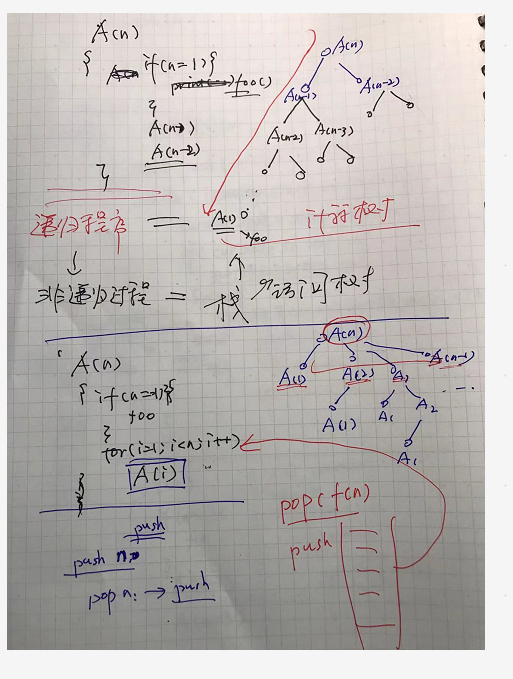 A(n)
{ if(n=1){
foo()
}
A(n-1)
A(n-2)
}
A(n)
A(n-1)
A(n-2)
A(n-2)
A(n-3)
递归程序 = A(1)
foo
计算树
↓
↑
非递归过程 = 栈 访问树
A(n)
{ if(n=1){
foo
}
for(i=1;i<n;i++)
A(i)
}
A(n)
A(1)
A(2)
A3
A(n-1)
A(1)
A1
A2
...
A1
push
push n
pop n: → push
pop(f(n)
push